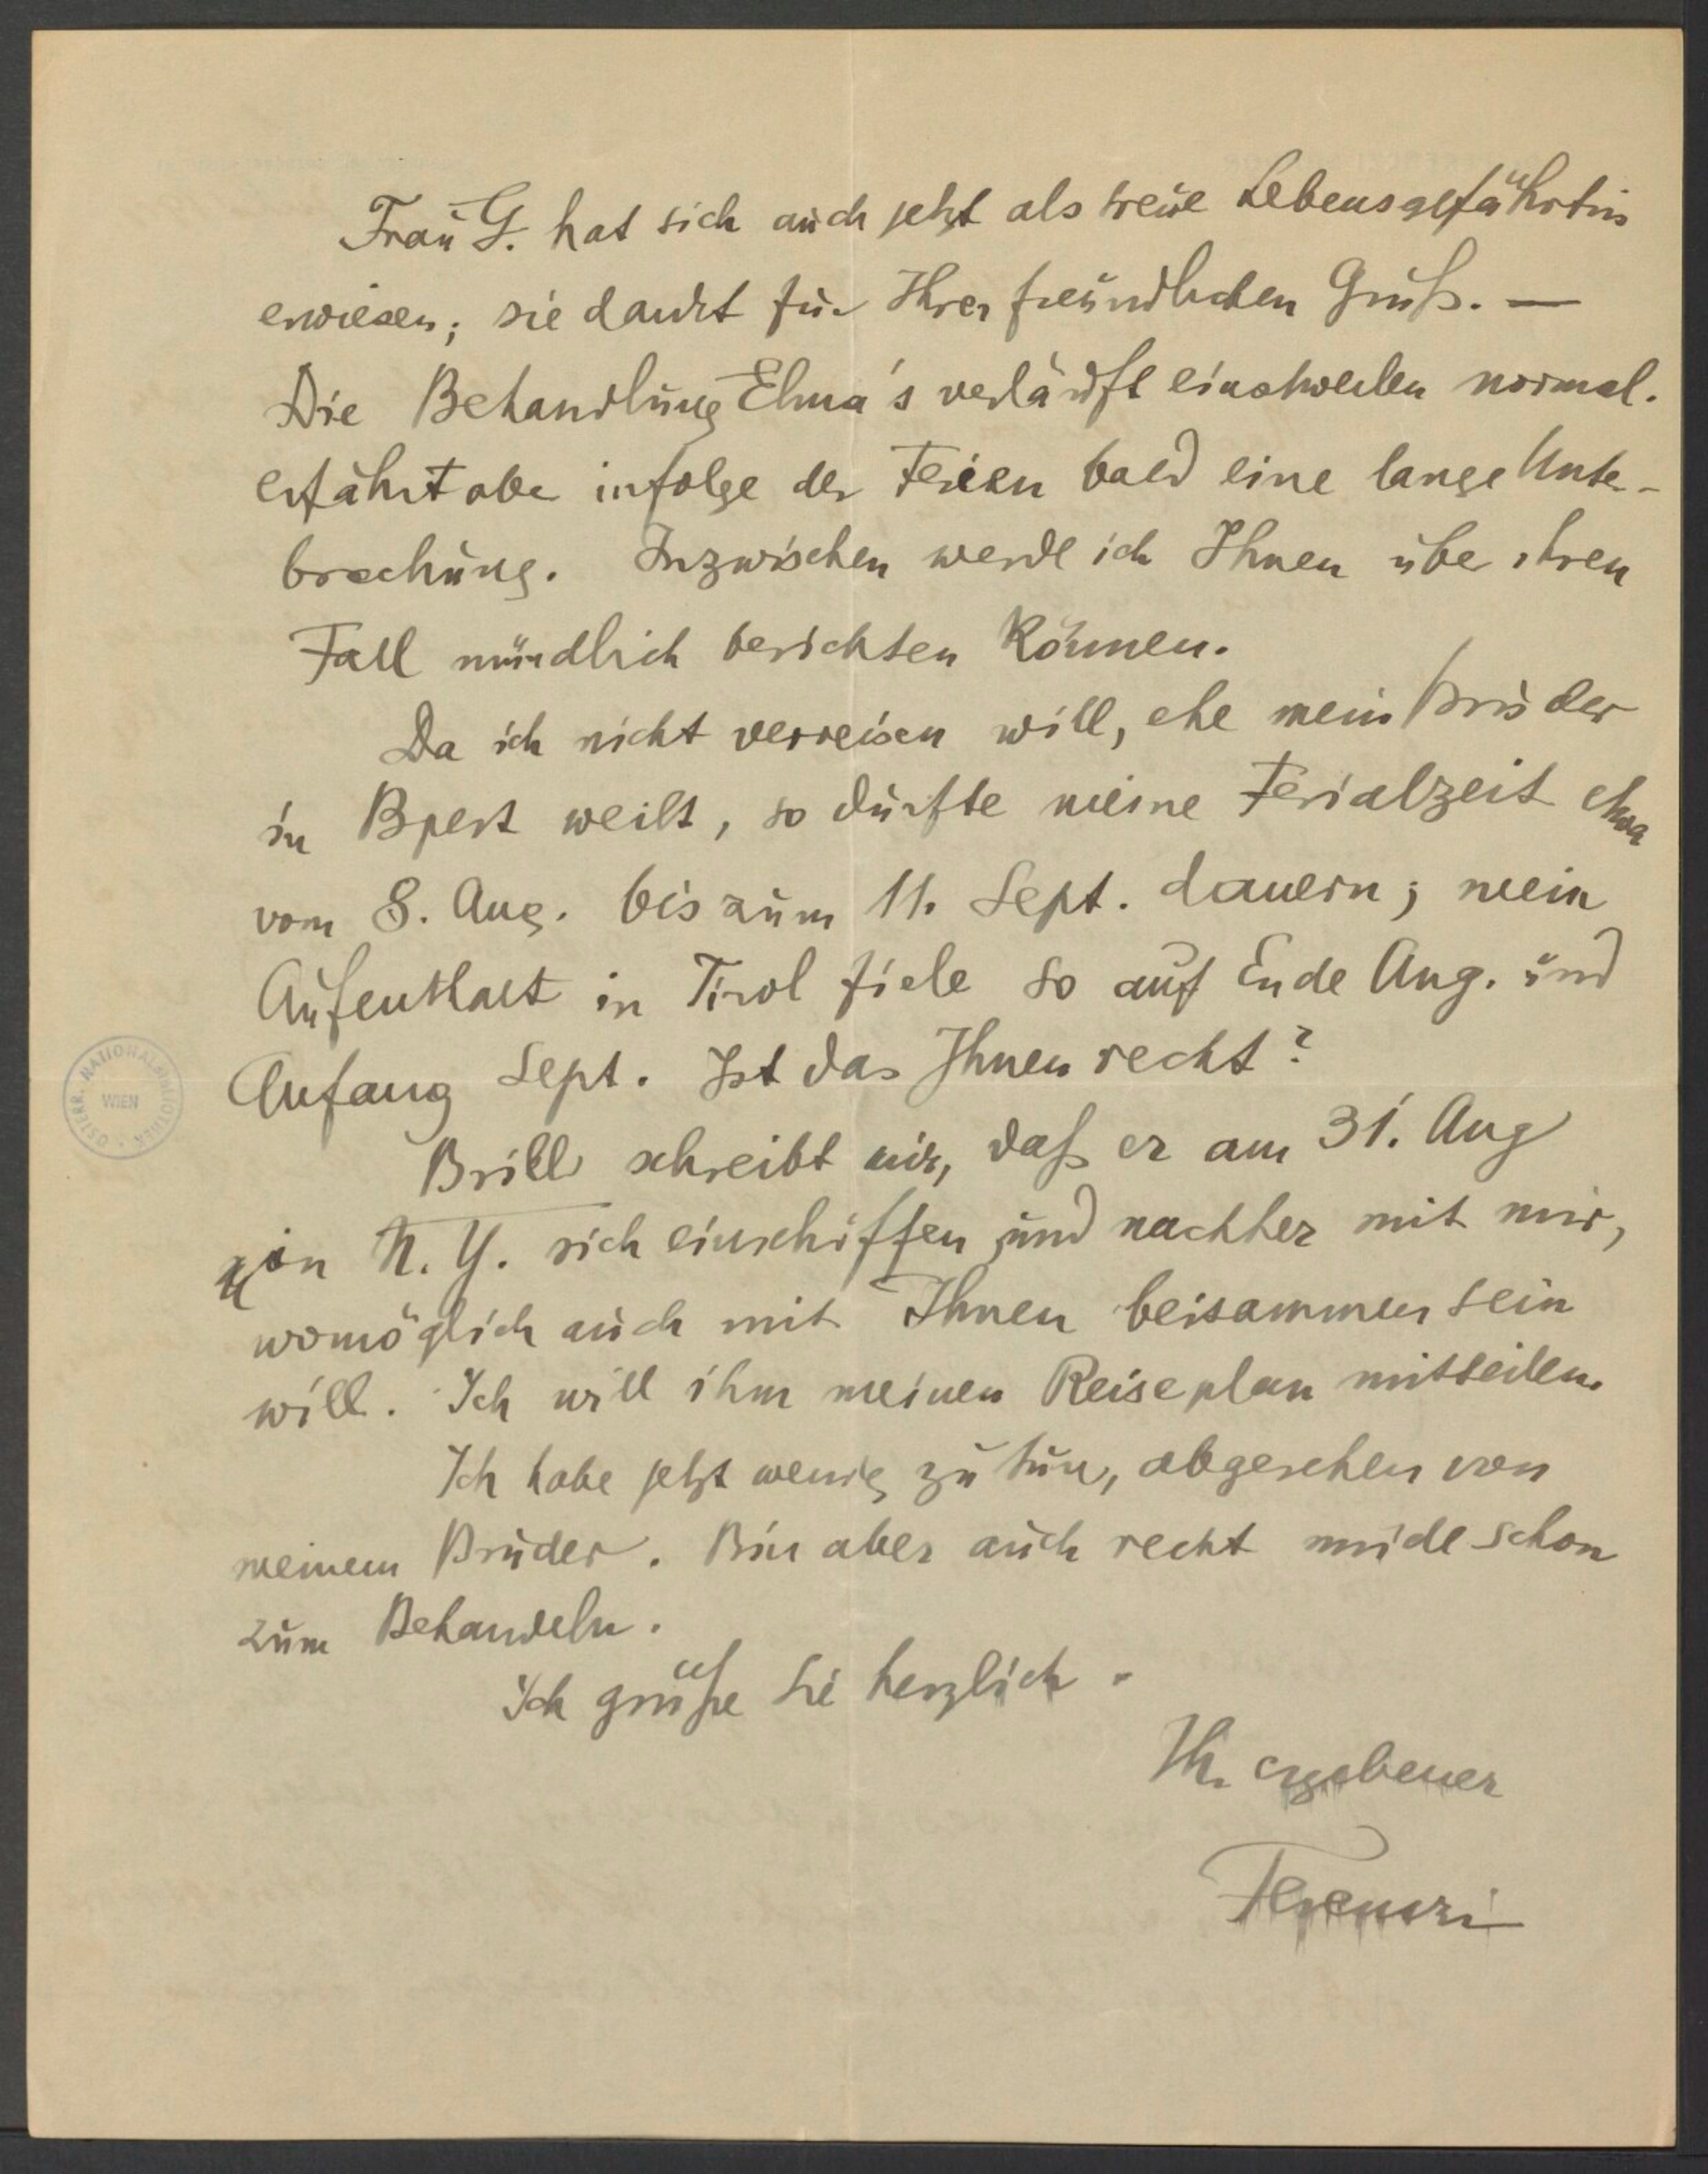 Frau G. hat sich auch jetzt als treue Lebensgefährtin
erwiesen; sie dankt für Ihren freundlichen Gruß. —
Die Behandlung Elma's verläuft einstweilen normal.
erfährt aber infolge der Ferien bald eine lange Unter-
brechung. Inzwischen werde ich Ihnen über ihren
Fall mündlich berichten können.
Da ich nicht verreisen will, ehe mein Bruder
in Bpest weilt, so dürfte meine Ferialzeit etwa
vom 8. Aug. bis zum 11. Sept. dauern; mein
Aufenthalt in Tirol fiele so auf Ende Aug. und
Anfang Sept. Ist das Ihnen recht?
Brill schreibt mir, daß er am 31. Aug
in N. Y. sich einschiffen und nachher mit mir,
womöglich auch mit Ihnen beisammen sein
will. Ich will ihm meinen Reiseplan mitteilen.
Ich habe jetzt wenig zu tun, abgesehen von
meinem Bruder. Bin aber auch recht müde schon
zum Behandeln.
Ich grüße Sie herzlich.
Ihr ergebener
Ferenczi
ÖSTERR. NATIONALBIBLIOTHEK
WIEN